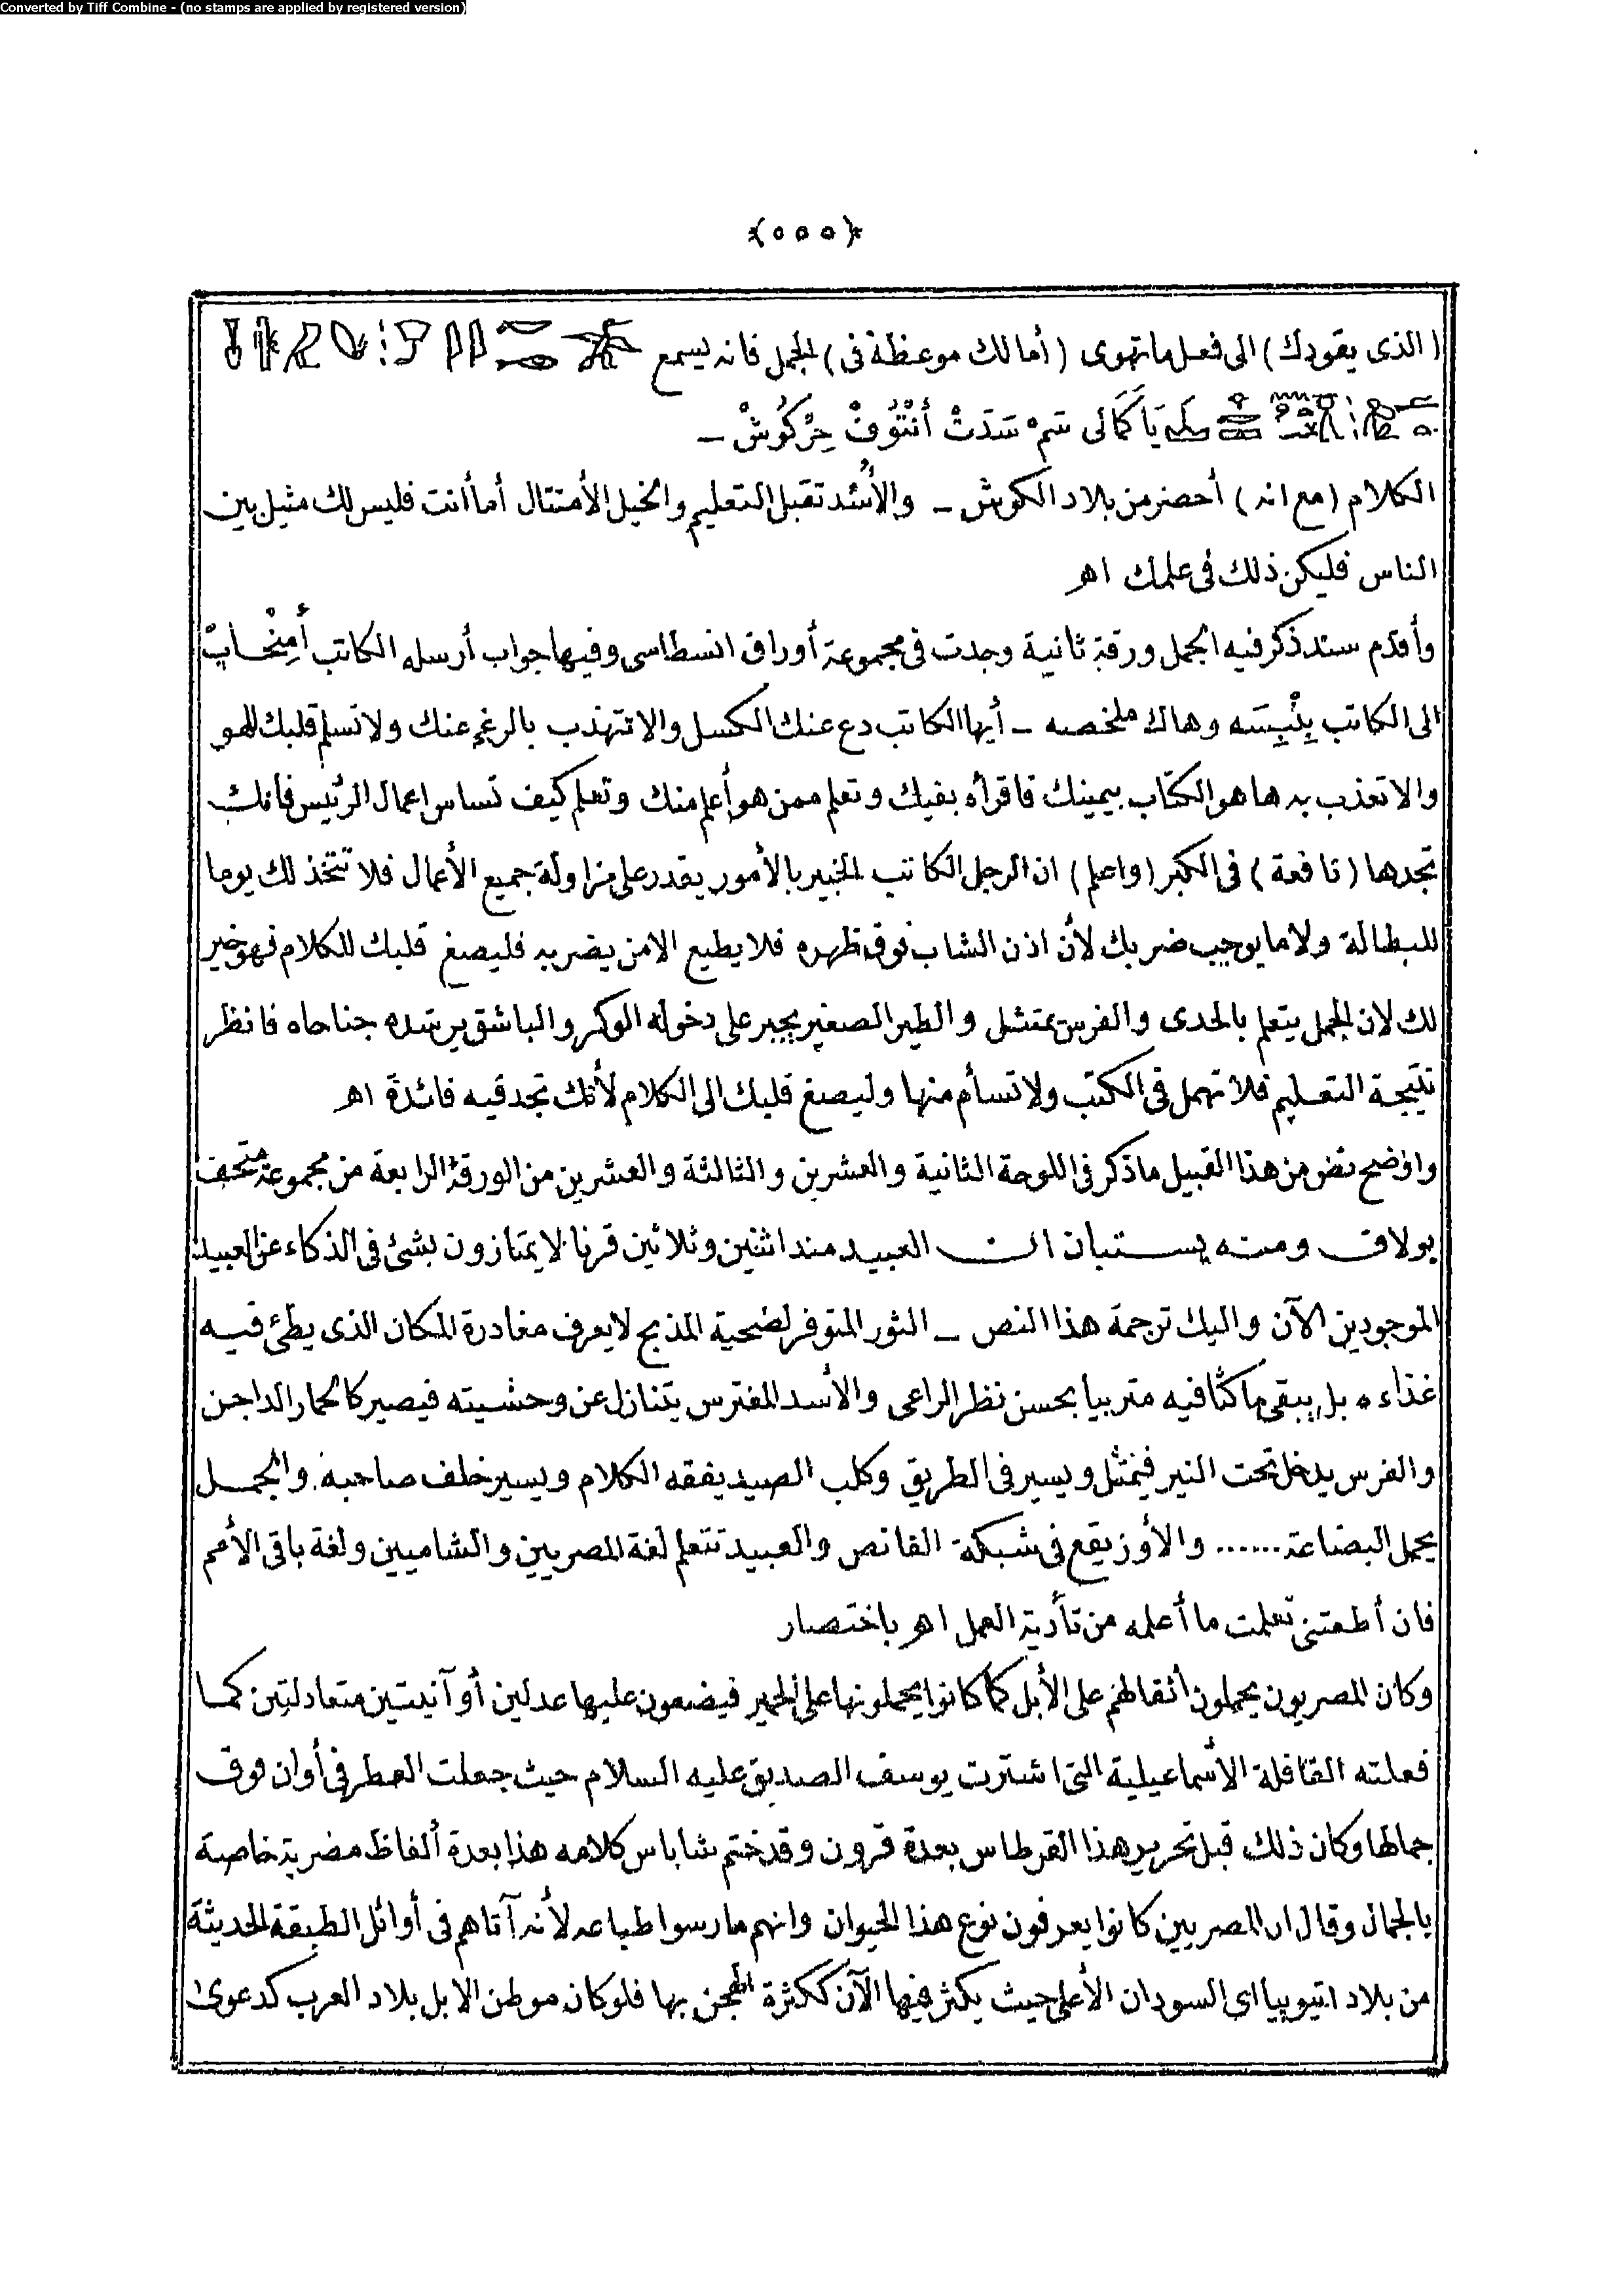 Converted by Tiff Combine - (no stamps are applied by registered version)
{٥٥٥}
(الذى يقودك) الى فعل ما تهوى (أما لك موعظة فى) الجمل فانه يسمع
يَاكَمَالى سَمْ سَدَتْ أَنْتُوُفْ حِرْكُوُشْ -
الكلام (مع انه) أحضر من بلاد الكوش - والأُسُد تقبل التعليم والخيل الأمتثال أما أنت فليس لك مثيل بين
الناس فليكن ذلك فى علمك اهـ
وأقدم سند ذكر فيه الجمل ورقة ثانية وجدت فى مجموعة أوراق انسطاسى وفيها جواب أرسله الكاتب أَمِنْحابْ
الى الكاتب بِنْبِسَه وهاك ملخصه - أيها الكاتب دع عنك الكسل والا تتهذب بالرغم عنك ولا تسلم قلبك للهو
والا تعذب به ها هو الكتاب بيمينك فاقرأه بفيك وتعلم ممن هو أعلم منك وتعلم كيف تساس اعمال الرئيس فأنك
تجدها (نافعة) فى الكبر (واعلم) ان الرجل الكاتب الخبير بالأمور يقدر على مزاولة جميع الأعمال فلا تتخذ لك يوما
للبطالة ولا ما يوجب ضربك لأن اذن الشاب فوق ظهره فلا يطيع الا من يضربه فليصغ قلبك للكلام فهو خير
لك لان الجمل يتعلم بالحدى والفرس يمتثل والطير الصغير يجبر على دخوله الوكر والباشق يرشده جناحاه فانظر
نتيجة التعليم فلا تهمل فى الكتب ولا تسأم منها وليصغ قلبك الى الكلام لأنك تجد فيه فائدة اهـ
واوضح نص من هذا القبيل ما ذكر فى اللوحة الثانية والعشرين والثالثة والعشرين من الورقة الرابعة من مجموعة متحف
بولاق ومنه يستبان ان العبيد منذ اثنين وثلاثين قرنا لا يمتازون بشئ فى الذكاء عن العبيد
الموجودين الآن واليك ترجمة هذا النص - الثور المتوفر لضحية المذبح لا يعرف مغادرة المكان الذى يطئ فيه
غذاءه بل يبقى ماكثا فيه متربيا بحسن نظر الراعى والأسد المفترس يتنازل عن وحشيته فيصير كالحمار الداجن
والفرس يدخل تحت النير فيمتثل ويسير فى الطريق وكلب الصيد يفقه الكلام ويسير خلف صاحبه. والجمل
يحمل البضاعة...... والأوز يقع فى شبكة القانص والعبيد تتعلم لغة المصريين والشاميين ولغة باقى الأمم
فان أطعتنى تعلمت ما أعلمه من تأدية العمل اهـ باختصار
وكان المصريون يحملون أثقالهم على الأبل كما كانوا يحملونها على الحمير فيضعون عليها عدلين أو آنيتين متعادلتين كما
فعلته القافلة الأسماعيلية التى اشترت يوسف الصديق عليه السلام حيث جعلت العطر فى أوان فوق
جمالها وكان ذلك قبل تحرير هذا القرطاس بعدة قرون وقد ختم شاباس كلامه هذا بعدة ألفاظ مصرية خاصة
بالجمال وقال ان المصريين كانوا يعرفون نوع هذا الحيوان وانهم مارسوا طباعه لأنه آتاهم فى أوائل الطبقة الحديثة
من بلاد اتيوبيا اى السودان الأعلى حيث يكثر فيها الآن ككثرة الهجن بها فلو كان موطن الابل بلاد العرب كدعوى